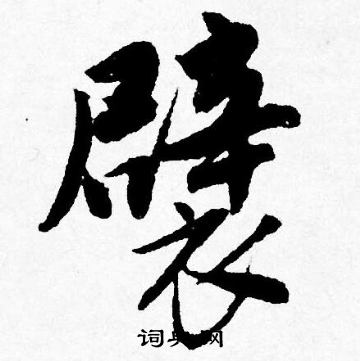 襞
词典网